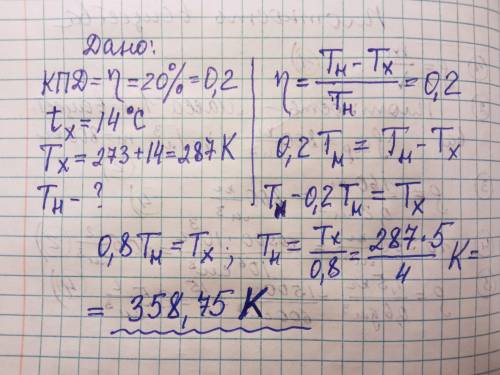 Дано:
КПД = η = 20% = 0,2
tₓ = 14°C
Tₓ = 273 + 14 = 287 K
Tн - ?
η = (Tн - Tₓ)/Tн = 0,2
0,2 Tн = Tн - Tₓ
Tн - 0,2 Tн = Tₓ
0,8 Tн = Tₓ ; Tн = Tₓ/0,8 = 287·5/4 K =
= 358,75 K